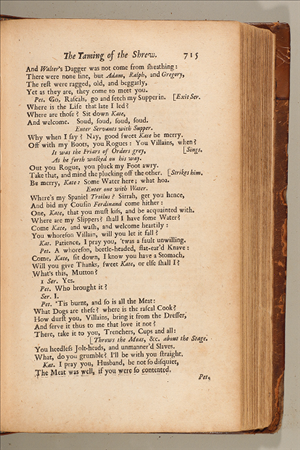 The Taming of the Shrew. 715
And Walter's Dagger was not come from sheathing:
There were none fine, but Adam, Ralph, and Gregory,
The rest were ragged, old, and beggarly,
Yet as they are, they come to meet you.
Pet. Go, Rascals, go and fetch my Supper in. [Exit Ser.
Where is the Life that late I led?
Where are those? Sit down Kate,
And welcome. Soud, soud, soud, soud.
Enter Servants with Supper.
Why when I say? Nay, good sweet Kate be merry.
Off with my Boots, you Rogues: You Villains, when?
It was the Friars of Orders grey, [Sings.
As he forth walked on his way.
Out you Rogue, you pluck my Foot awry.
Take that, and mind the plucking off the other. [Strikes him.
Be merry, Kate: Some Water here; what hoa.
Enter one with Water.
Where's my Spaniel Troilus? Sirrah, get you hence,
And bid my Cousin Ferdinand come hither:
One, Kate, that you must kiss, and be acquainted with.
Where are my Slippers? shall I have some Water?
Come Kate, and wash, and welcome heartily:
You whoreson Villain, will you let it fall?
Kat. Patience, I pray you, 'twas a fault unwilling.
Pet. A whoreson, beetle-headed, flat-ear'd Knave:
Come, Kate, sit down, I know you have a Stomach,
Will you give Thanks, sweet Kate, or else shall I?
What's this, Mutton?
1 Ser. Yes.
Pet. Who brought it?
Ser. I.
Pet. 'Tis burnt, and so is all the Meat:
What Dogs are these? where is the rascal Cook?
How durst you, Villains, bring it from the Dresser,
And serve it thus to me that love it not?
There, take it to you, Trenchers, Cups and all:
[Throws the Meat, &c. about the Stage.
You heedless Jolt-heads, and unmanner'd Slaves.
What, do you grumble? I'll be with you straight.
Kat. I pray you, Husband, be not so disquiet,
The Meat was well, if you were so contented.
Pet.